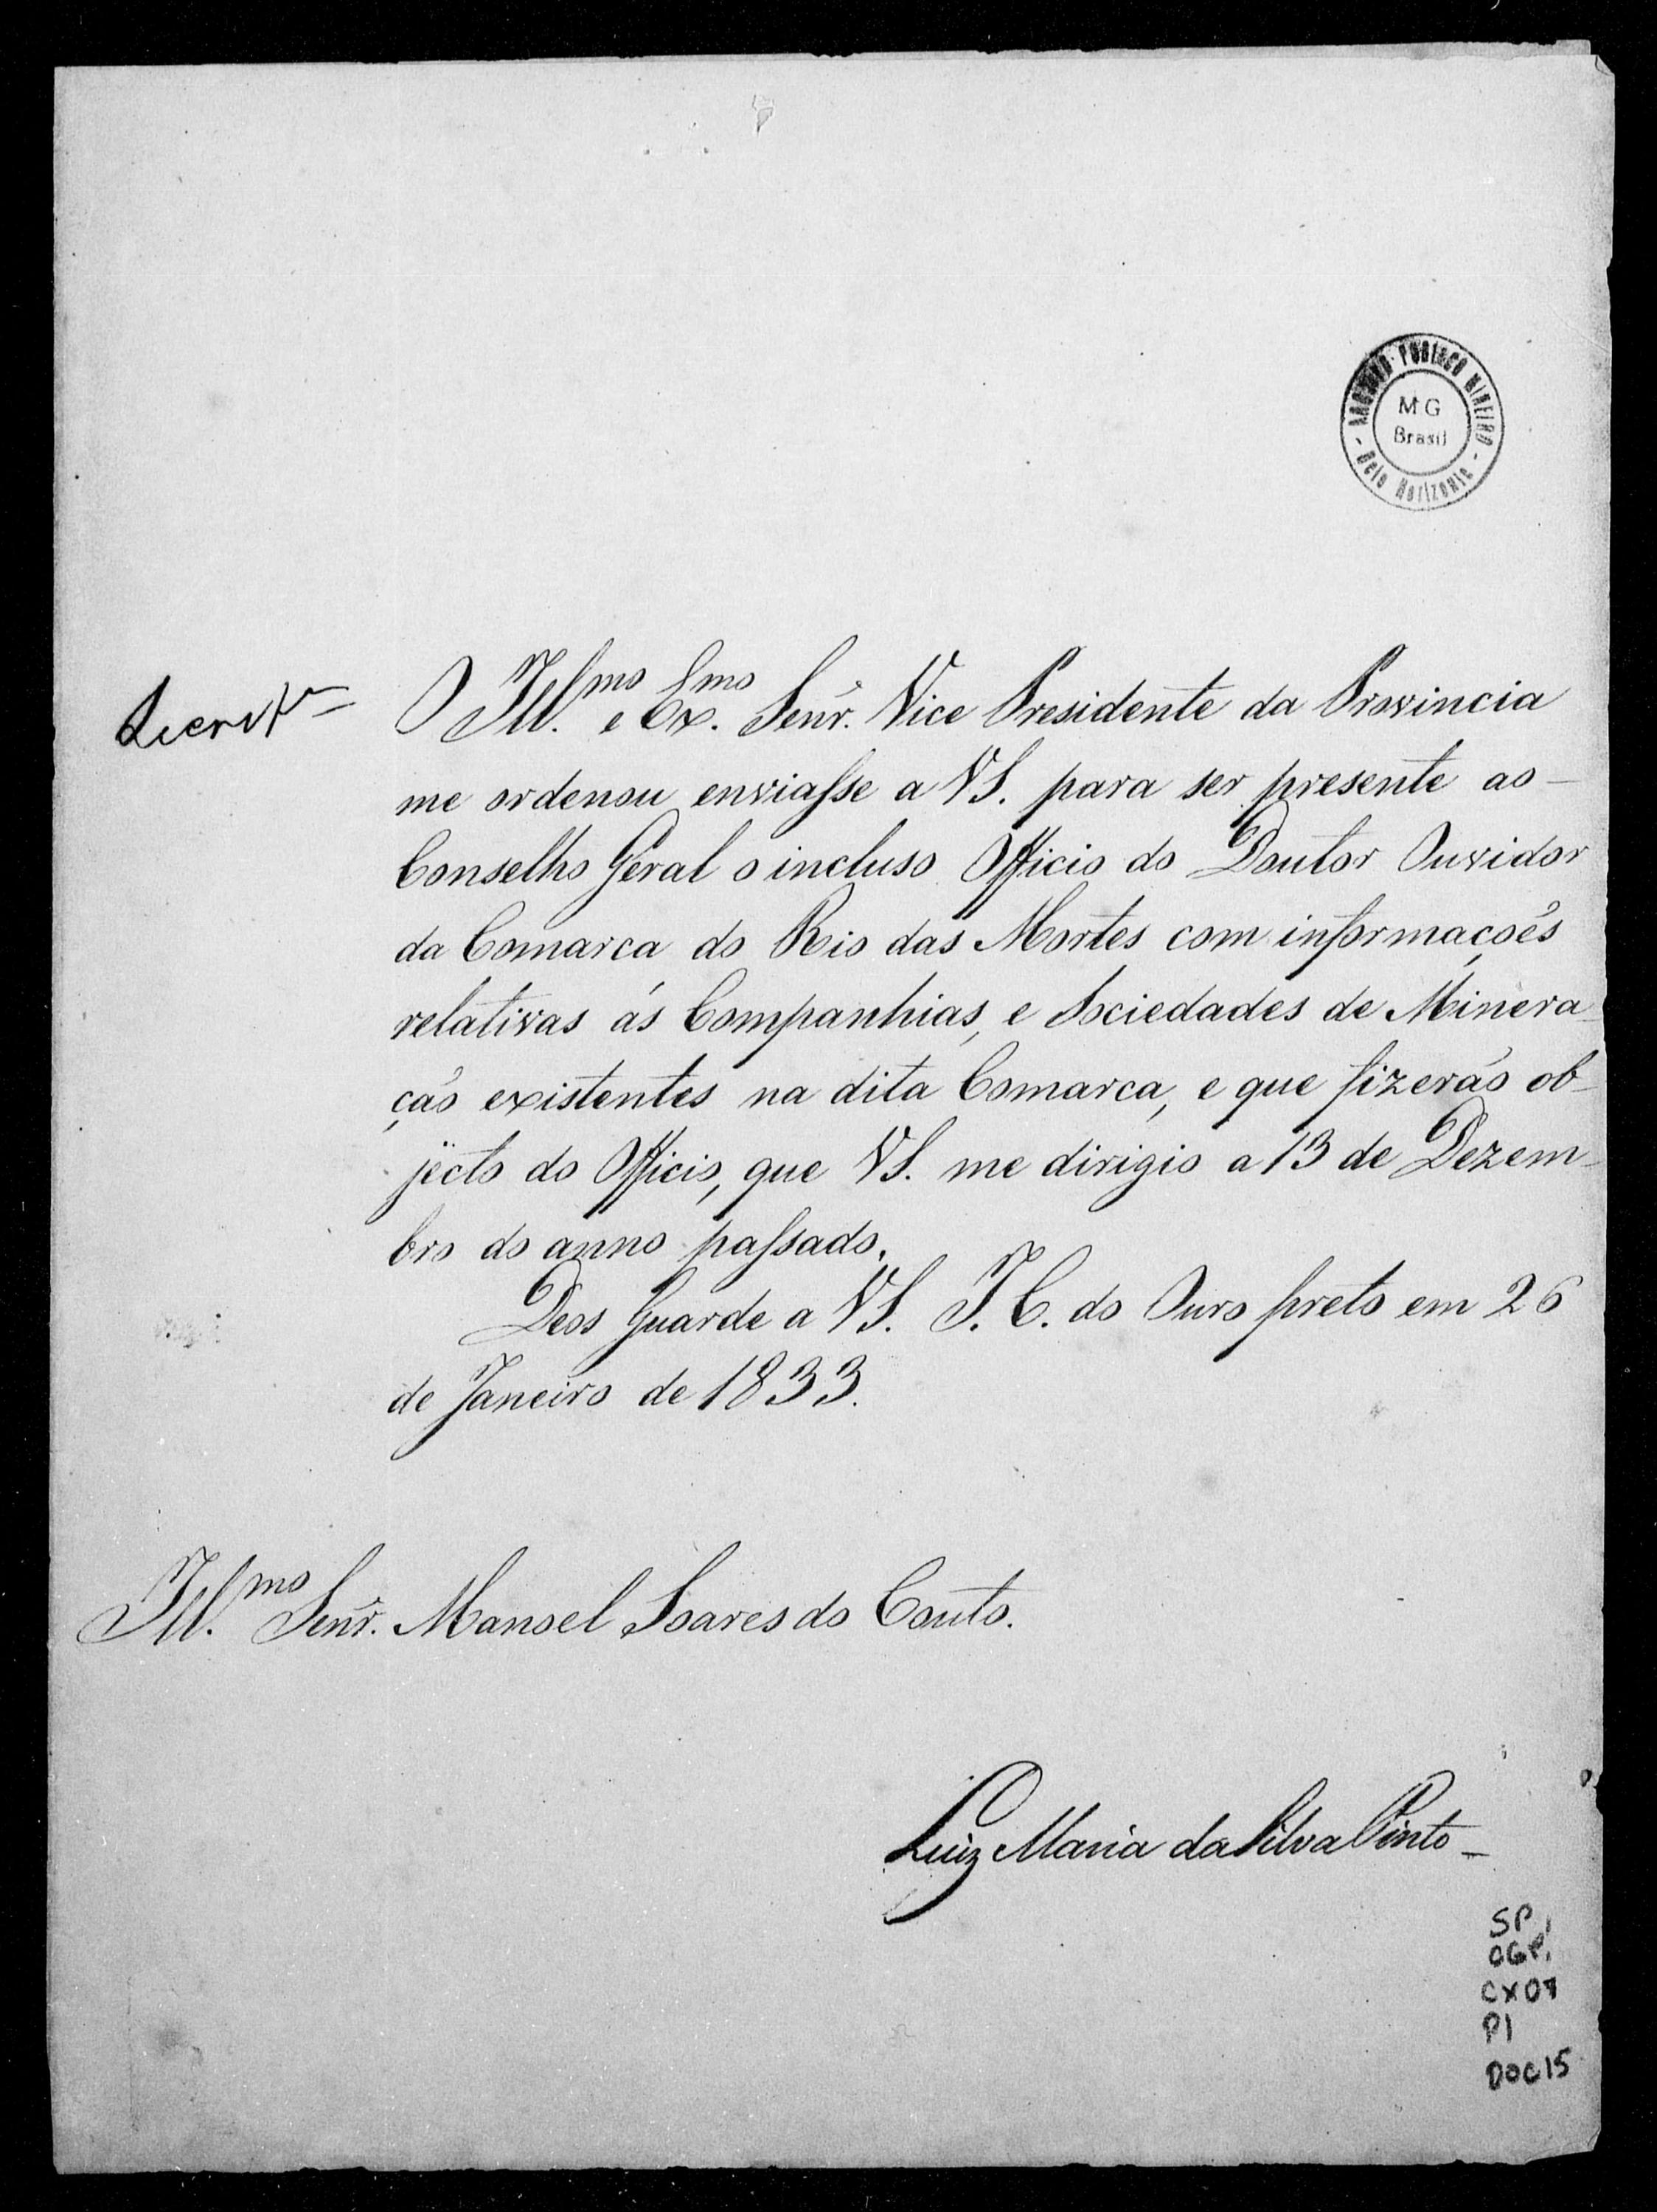 ARQUIVO PÚBLICO MINEIRO
MG
Brasil
- Belo Horizonte -
O Ill.mo e Ex.mo Senr. Vice Presidente da Provincia
me ordenou enviasse a VS. para ser presente ao
Conselho Geral o incluso Officio do Doutor Ouvidor
da Comarca do Rio das Mortes com informaçoẽs
relativas ás Companhias, e Sociedades de Minera-
çaõ existentes na dita Comarca, e que fizeraõ ob-
jecto do Officio, que VS. me dirigio a 13 de Dezem-
bro do anno passado.
Deos Guarde a VS. I. C. do Ouro preto em 26
de Janeiro de 1833.
Ill.mo Senr. Manoel Soares do Couto.
Luiz Maria da Silva Pinto
SP,
OGP,
CX07
P1
DOC15